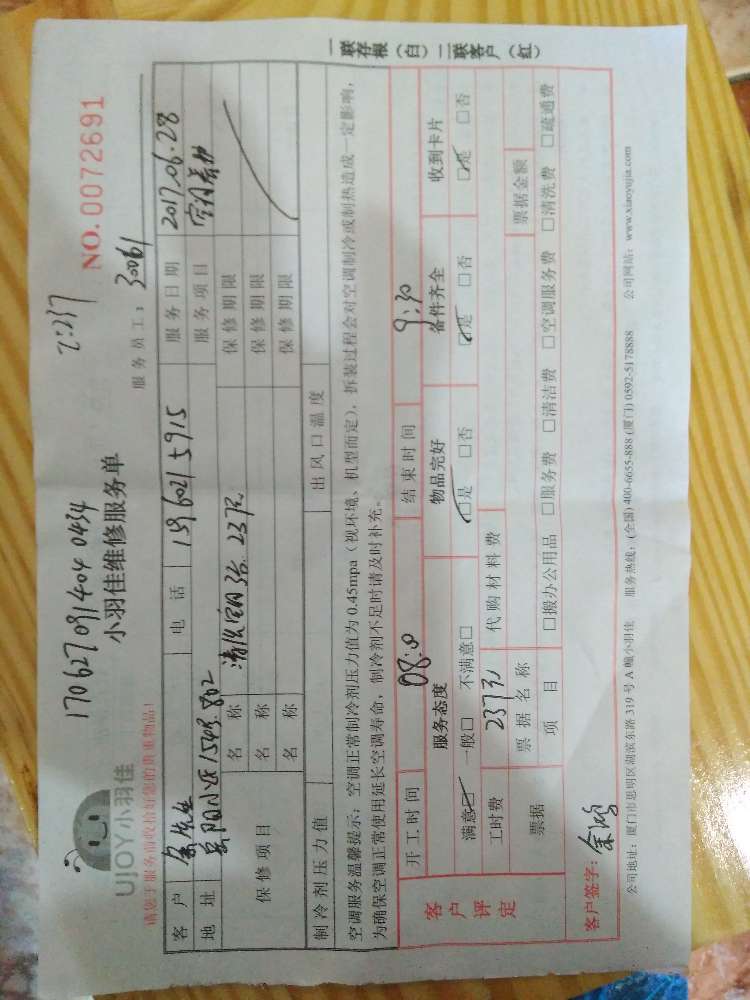 17062709140404​34
2:237
UJOY小羽佳
小羽佳维修服务单
NO.0072691
请您于服务前收拾好您的贵重物品!
服务员工: 30061
客户 余先生 电话 15960215915 服务日期 2017.06.28
地址 岳阳小区154号802 服务项目
保修项目 名称 保修期限
名称 保修期限
名称 保修期限
制冷剂压力值 出风口温度
空调服务温馨提示:空调正常制冷剂压力值为0.45mpa(视环境、机型而定),拆装过程会对空调制冷或制热造成一定影响,
为确保空调正常使用延长空调寿命,制冷剂不足时请及时补充。
客户评定
开工时间 08:00 结束时间 9:30
服务态度 物品完好 备件齐全 收到卡片
满意☑ 一般□ 不满意□ ☑是 □否 ☑是 □否 ☑是 □否
工时费 237元 代购材料费
票据 票据名称 票据金额
项目 □搬办公用品 □服务费 □清洁费 □空调服务费 □清洗费 □疏通费
客户签字:
公司地址:厦门市思明区湖滨东路319号A幢小羽佳 服务热线:(全国)400-6655-888 (厦门)0592-5178888 公司网站:www.xiaoyujia.com
一联存根(白)二联客户(红)